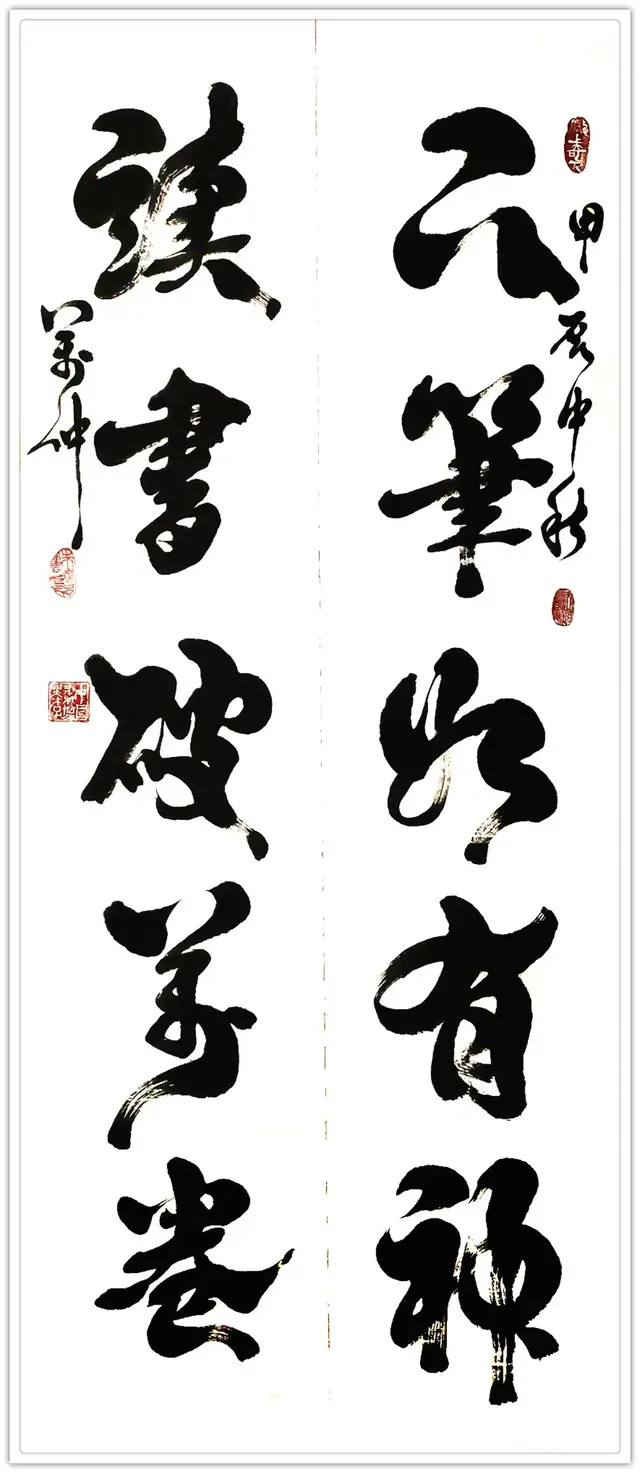 甲辰中秋
下筆如有神
讀書破萬卷
萬仲